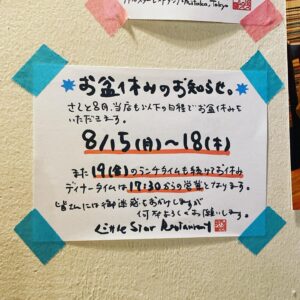 Mitaka, Tokyo
お盆休みのお知らせ。
さて8月、当店も以下の日程でお盆休みを
いただきます。
8/15(月)〜18(木)
また19(金)のランチタイムも続けてお休み
ディナータイムは17:30からの営業となります。
皆さんには御迷惑をおかけしますが
何卒よろしくお願いします。
Little Star Restaurant